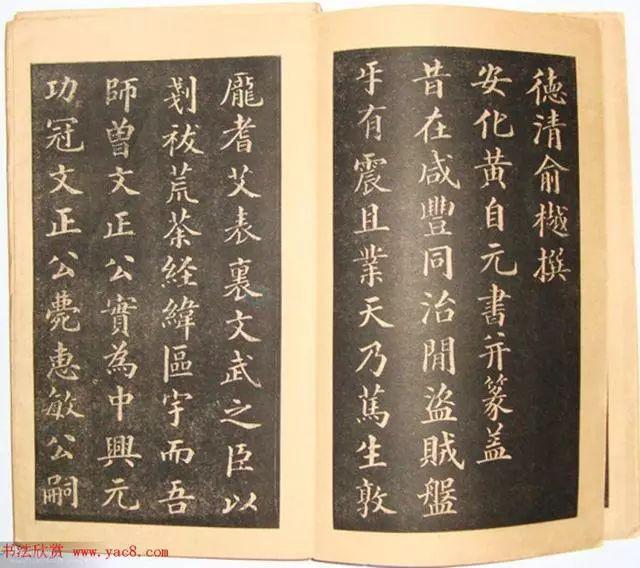 德清俞樾撰
安化黃自元書并篆蓋
昔在咸豐同治閒盜賊盤
牙有震且業天乃篤生敦
龐耆艾表裏文武之臣以
剗祓荒荼経緯區宇而吾
師曾文正公實為中興元
功冠文正公薨惠敏公嗣
书法欣赏 www.yac8.com